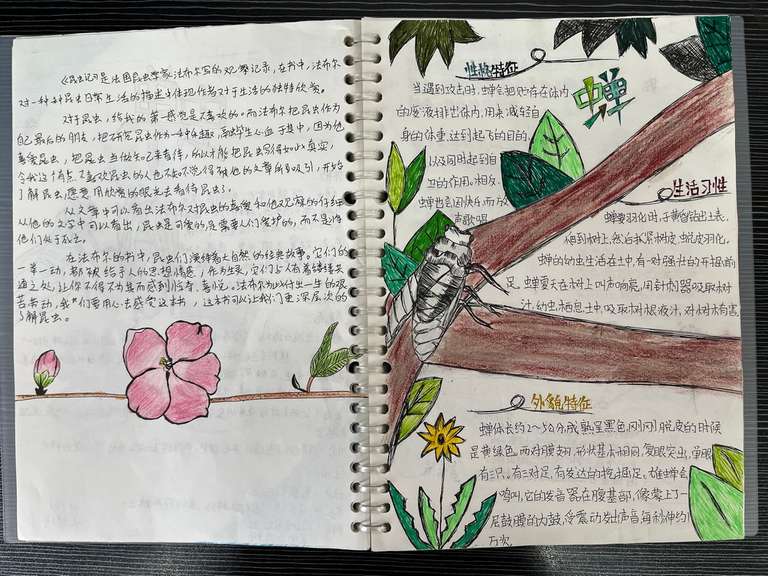 《昆虫记》是法国昆虫学家法布尔写的观察记录,在书中,法布尔
对一种种昆虫日常生活的描述中体现作者对于生活的独特欣赏。
对于昆虫,给我的第一感觉是不喜欢的,而法布尔把昆虫作为
自己最后的朋友,把研究昆虫作为一种乐趣,
喜爱昆虫,把昆虫当做知己来看待,所以才能把昆虫写得如此真实,
令我这个有点不喜欢昆虫的人也不知不觉得被他的文章所吸引,开始
了解昆虫,愿意用欣赏的眼光去看待昆虫。
从文章中可以看出法布尔对昆虫的喜爱和他观察的仔细
从他的文字中可以看出,昆虫是可爱的,是需要人们爱护的,而不是将
他们置于死地。
在法布尔的书中,昆虫们演绎着大自然的经典故事。它们的
一举一动,都被给予人的思想情感,
通之处,让你不得不为其而感到惊奇、喜悦。法布尔为此付出一生的艰
苦劳动,我们要用心去感受这本书,这本书可以让我们更深层次的
了解昆虫。
性格特征
蝉
当遇到攻击时,蝉会把贮存在体内
的废液排出体外,用来减轻自
身的体重,达到起飞的目的,
以及同时起到自
卫的作用。相反,
蝉也会因快乐而放
声歌唱
生活习性
蝉要羽化时,于黄昏钻出土表,
爬到树上,然后抓紧树皮,蜕皮羽化。
蝉的幼虫生活在土中,有一对强壮的开掘前
足。蝉夏天在树上叫声响亮,用针刺器吸取树
汁,幼虫栖息土中,吸取树根液汁,对树木有害
外貌特征
蝉体长约2~5公分,成熟呈黑色,刚刚脱皮的时候
是黄绿色。两对膜翅,形状基本相同,复眼突出,单眼
有三只。有三对足,有发达的挖掘足。雄蝉会
鸣叫,它的发音器在腹基部,像蒙上了一
层鼓膜的大鼓,受震动发出声音,每秒伸约1
万次